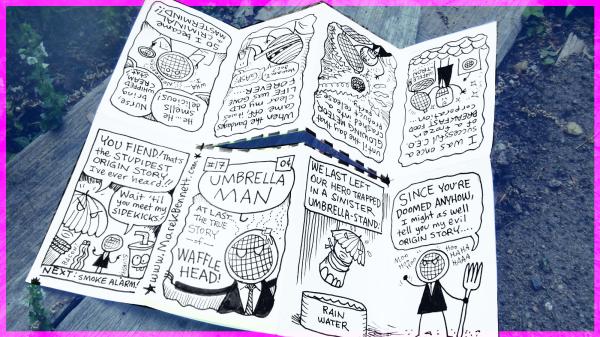 #17
UMBRELLA
MAN
AT LAST--
THE TRUE
STORY
—of—
WAFFLE
HEAD!
www.MarekBennett.com
WE LAST LEFT
OUR HERO TRAPPED
IN A SINISTER
UMBRELLA-STAND!
RAIN
WATER
SINCE YOU'RE
DOOMED ANYHOW,
I might as well
tell you my evil
ORIGIN STORY....
HAHA
HAAA
I was once a
successful CEO
of a frozen
BREAKFAST FOOD
corporation...
Until the day that
GLOWING METEOR
crashed into my
When the bandages
came off, it was
clear my old
LIFE was GONE
FOREVER...
Nurse,
bring
whipped
cream
He... He
smells
delicious!
SO I became
a CRIMINAL
MASTERMIND!!
YOU FIEND! that's
the STUPIDEST
ORIGIN STORY
I've ever heard!!
Wait 'til
you meet my
SIDEKICKS!
NEXT: SMOKE ALARM!